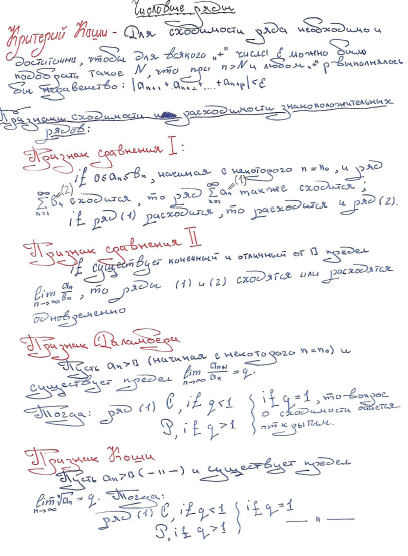 Числовые ряды
Критерий Коши - Для сходимости ряда необходимо и
достаточно, чтобы для всякого „+" числа ε можно было
подобрать такое N, что при n>N и любом „+" p выполнялось
бы неравенство: |aₙ₊₁+aₙ₊₂+...+aₙ₊ₚ|<ε
Признаки сходимости и расходимости знакоположительных
рядов:
Признак сравнения I:
if 0≤aₙ≤bₙ, начиная с некоторого n=n₀, и ряд
∑bₙ (2) сходится, то ряд ∑aₙ (1) также сходится;
if ряд (1) расходится, то расходится и ряд (2).
Признак сравнения II
if существует конечный и отличный от 0 предел
lim n→∞ aₙ/bₙ, то ряды (1) и (2) сходятся или расходятся
одновременно
Признак Даламбера
Пусть aₙ>0 (начиная с некоторого n=n₀) и
существует предел lim n→∞ aₙ₊₁/aₙ = q.
Тогда: ряд (1) С, if q<1 } if q=1, то вопрос
Р, if q>1 о сходимости остаётся
открытым.
Признак Коши
Пусть aₙ>0 (—"—) и существует предел
lim n→∞ ⁿ√aₙ = q. Тогда:
ряд (1) С, if q<1 } if q=1
Р, if q>1 —"—